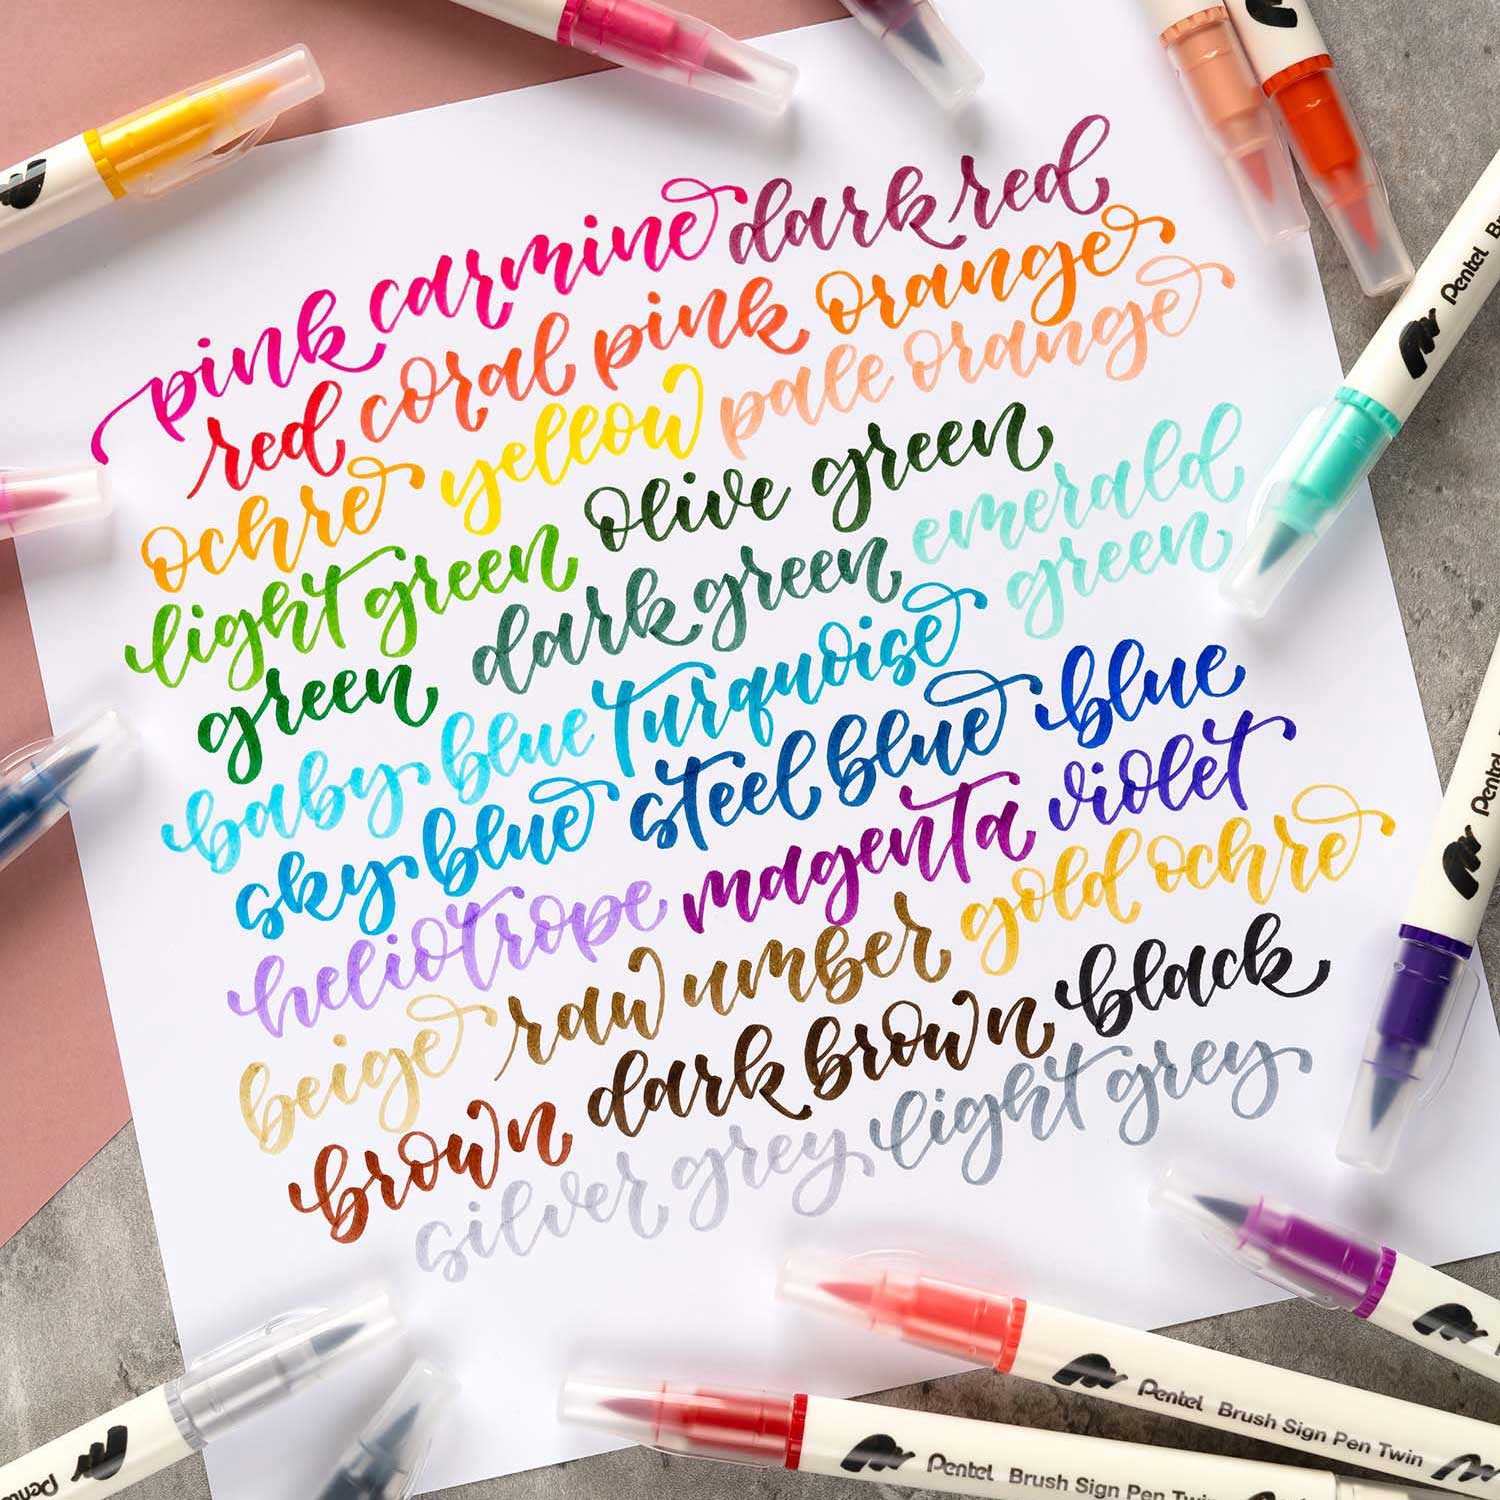 pink carmine dark red
red coral pink orange
ochre yellow pale orange
light green olive green
green dark green emerald
green
baby blue turquoise
sky blue steel blue blue
heliotrope magenta violet
beige raw umber gold ochre
brown dark brown black
silver grey light grey
Pentel
Pentel
Pentel Brush Sign Pen Twin
Pentel Brush Sign Pen Twin
Pentel